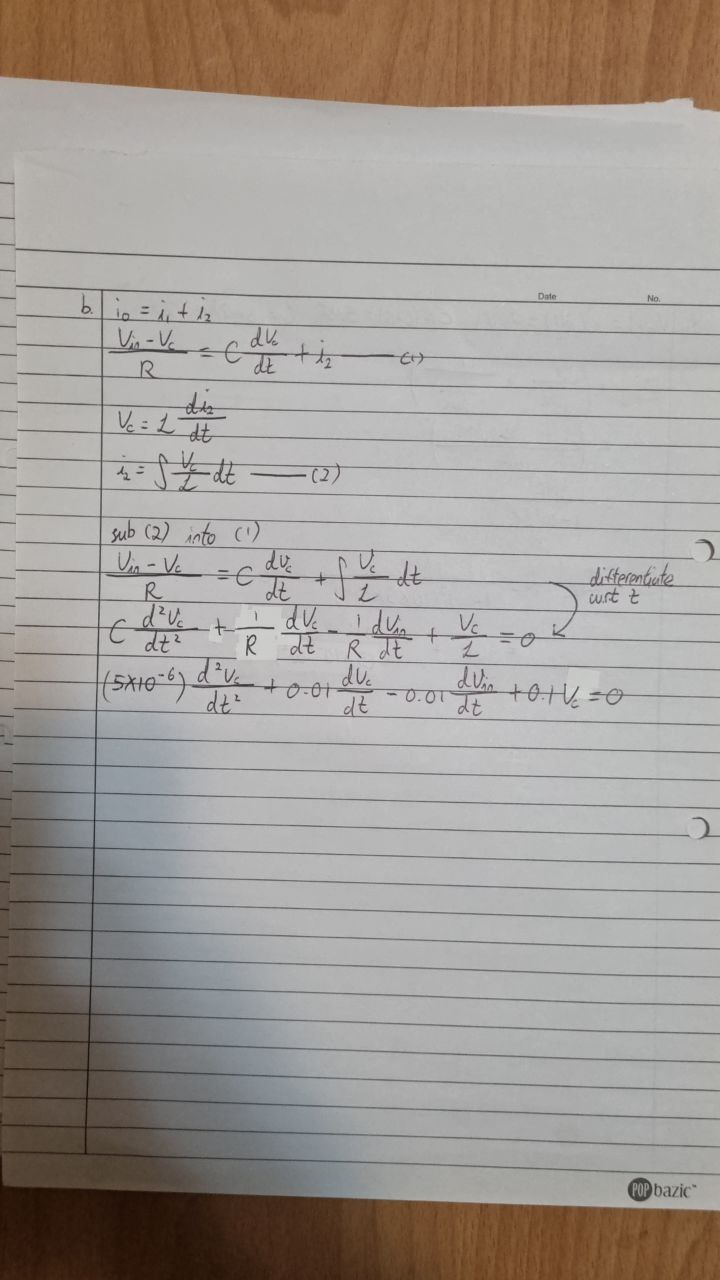 Date No.
b. i₀ = i₁ + i₂
(Vin - Vc)/R = C dVc/dt + i₂ —— (1)
Vc = L di₂/dt
i₂ = ∫ Vc/L dt —— (2)
sub (2) into (1)
(Vin - Vc)/R = C dVc/dt + ∫ Vc/L dt
differentiate
wrt t
C d²Vc/dt² + 1/R dVc/dt - 1/R dVin/dt + Vc/L = 0
(5×10⁻⁶) d²Vc/dt² + 0.01 dVc/dt - 0.01 dVin/dt + 0.1Vc = 0
POP bazic™